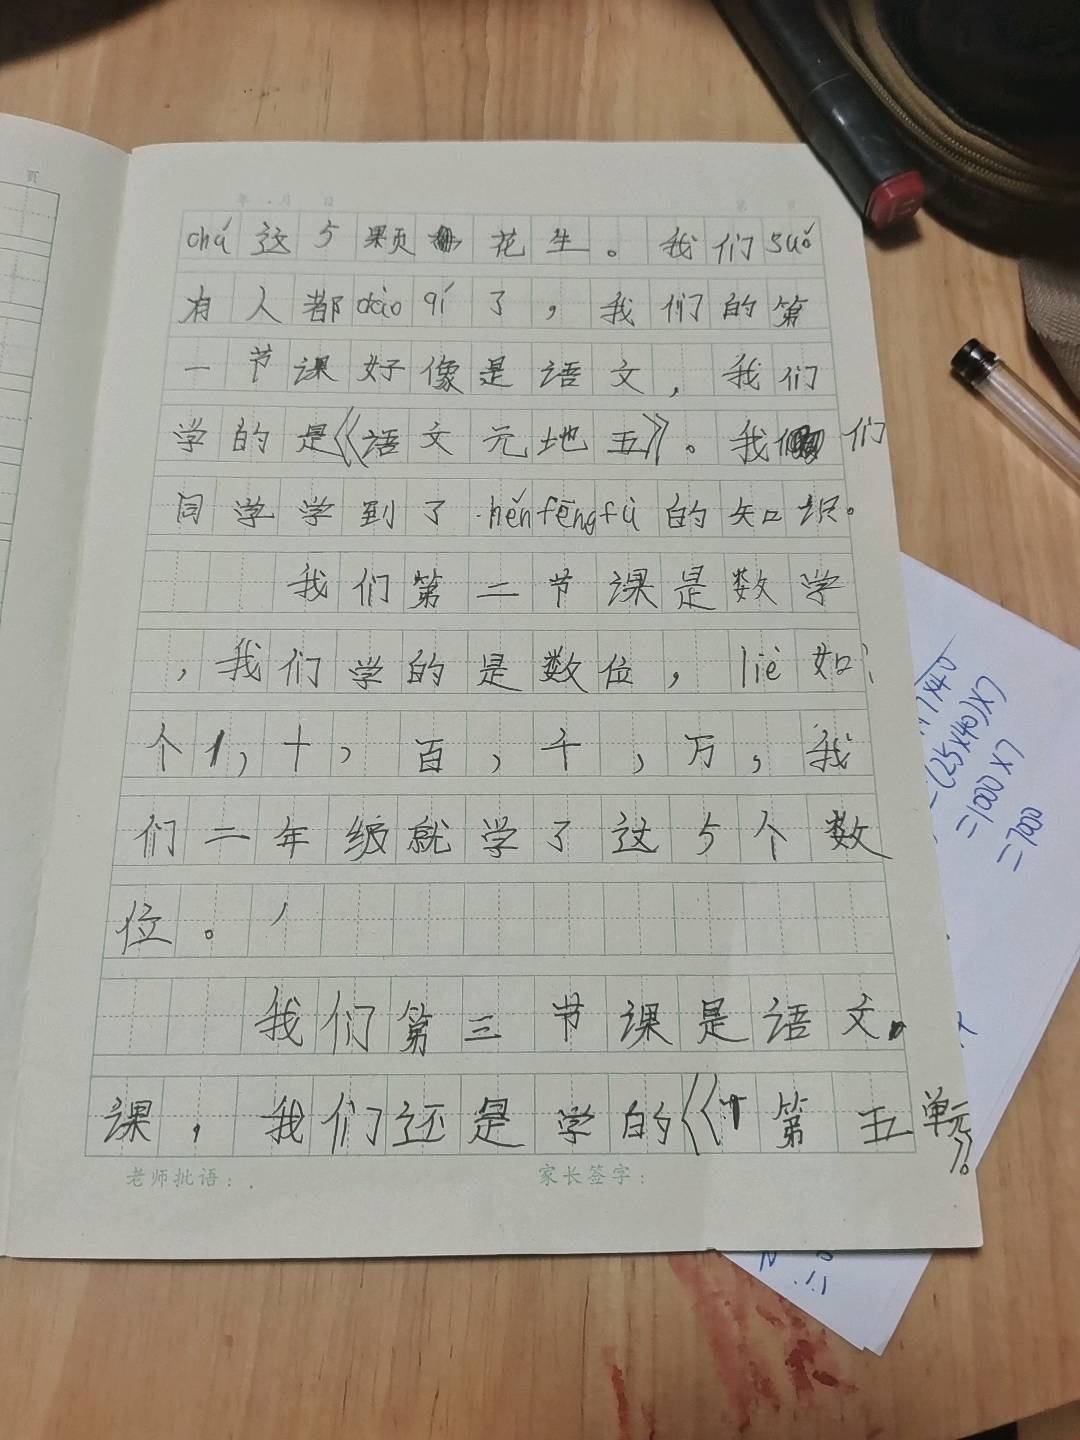 年 月 日
chá这5颗花生。我们suǒ
有人都dào qí了，我们的第
一节课好像是语文，我们
学的是《语文元地五》。我们
同学学到了hěnfēngfù的知识。
我们第二节课是数学
，我们学的是数位，liè如
个，十，百，千，万，我
们二年级就学了这5个数
位。
我们第三节课是语文
课，我们还是学的《第五单元》。
老师批语： 家长签字：
=(25×40)×7
=1000×7
=7000